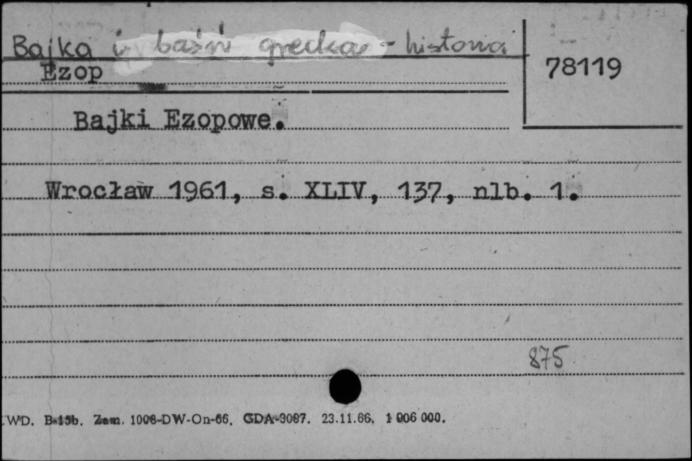 Bajka i baśń grecka - historia
Ezop
78119
Bajki Ezopowe.
Wrocław 1961, s. XLIV, 137, nlb. 1.
875
WD. B-15b. Zam. 1006-DW-On-66. GDA-3087. 23.11.66. 1 006 000.